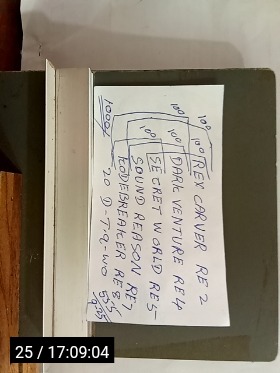 REX CARVER RE 2
DARK VENTURE RE4
SECRET WORLD RE5
SOUND REASON RE7
KODEBREAKER RE8
20 D-T-Q-WO
100
100
100
100
100
1000
25 / 17:09:04